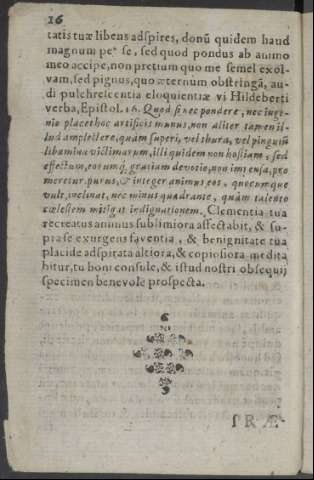 16
tatis tuæ libens adspires, donū quidem haud
magnum per se, sed quod pondus ab animo
meo accipe, non pretium quo me semel exol-
vam, sed pignus, quo æternùm obstringā, au-
di pulchrescentia eloquentiæ vi Hildeberti
verba, Epistol. 16. Quod si nec pondere, nec inge-
nio placet hoc artificis munus, non aliter tamen il-
lud amplectere, quàm superi, vel thura, vel pinguiū
libamina victimarum, illi quidem non hostiam, sed
effectum, eorumq́; gratiam devotio, non impensa, pro
meretur. purus, & integer animus eos, quocumque
vult, inclinat, nec minus quadrante, quàm talento
cœlestem mitigat indignationem. Clementia tua
recreatus animus sublimiora affectabit, & su-
pra se exurgens faventia, & benignitate tua
placide adspirata altiora, & copiosiora medita
bitur, tu boni consule, & istud nostri obsequij
specimen benevole prospecta.
PRÆ-